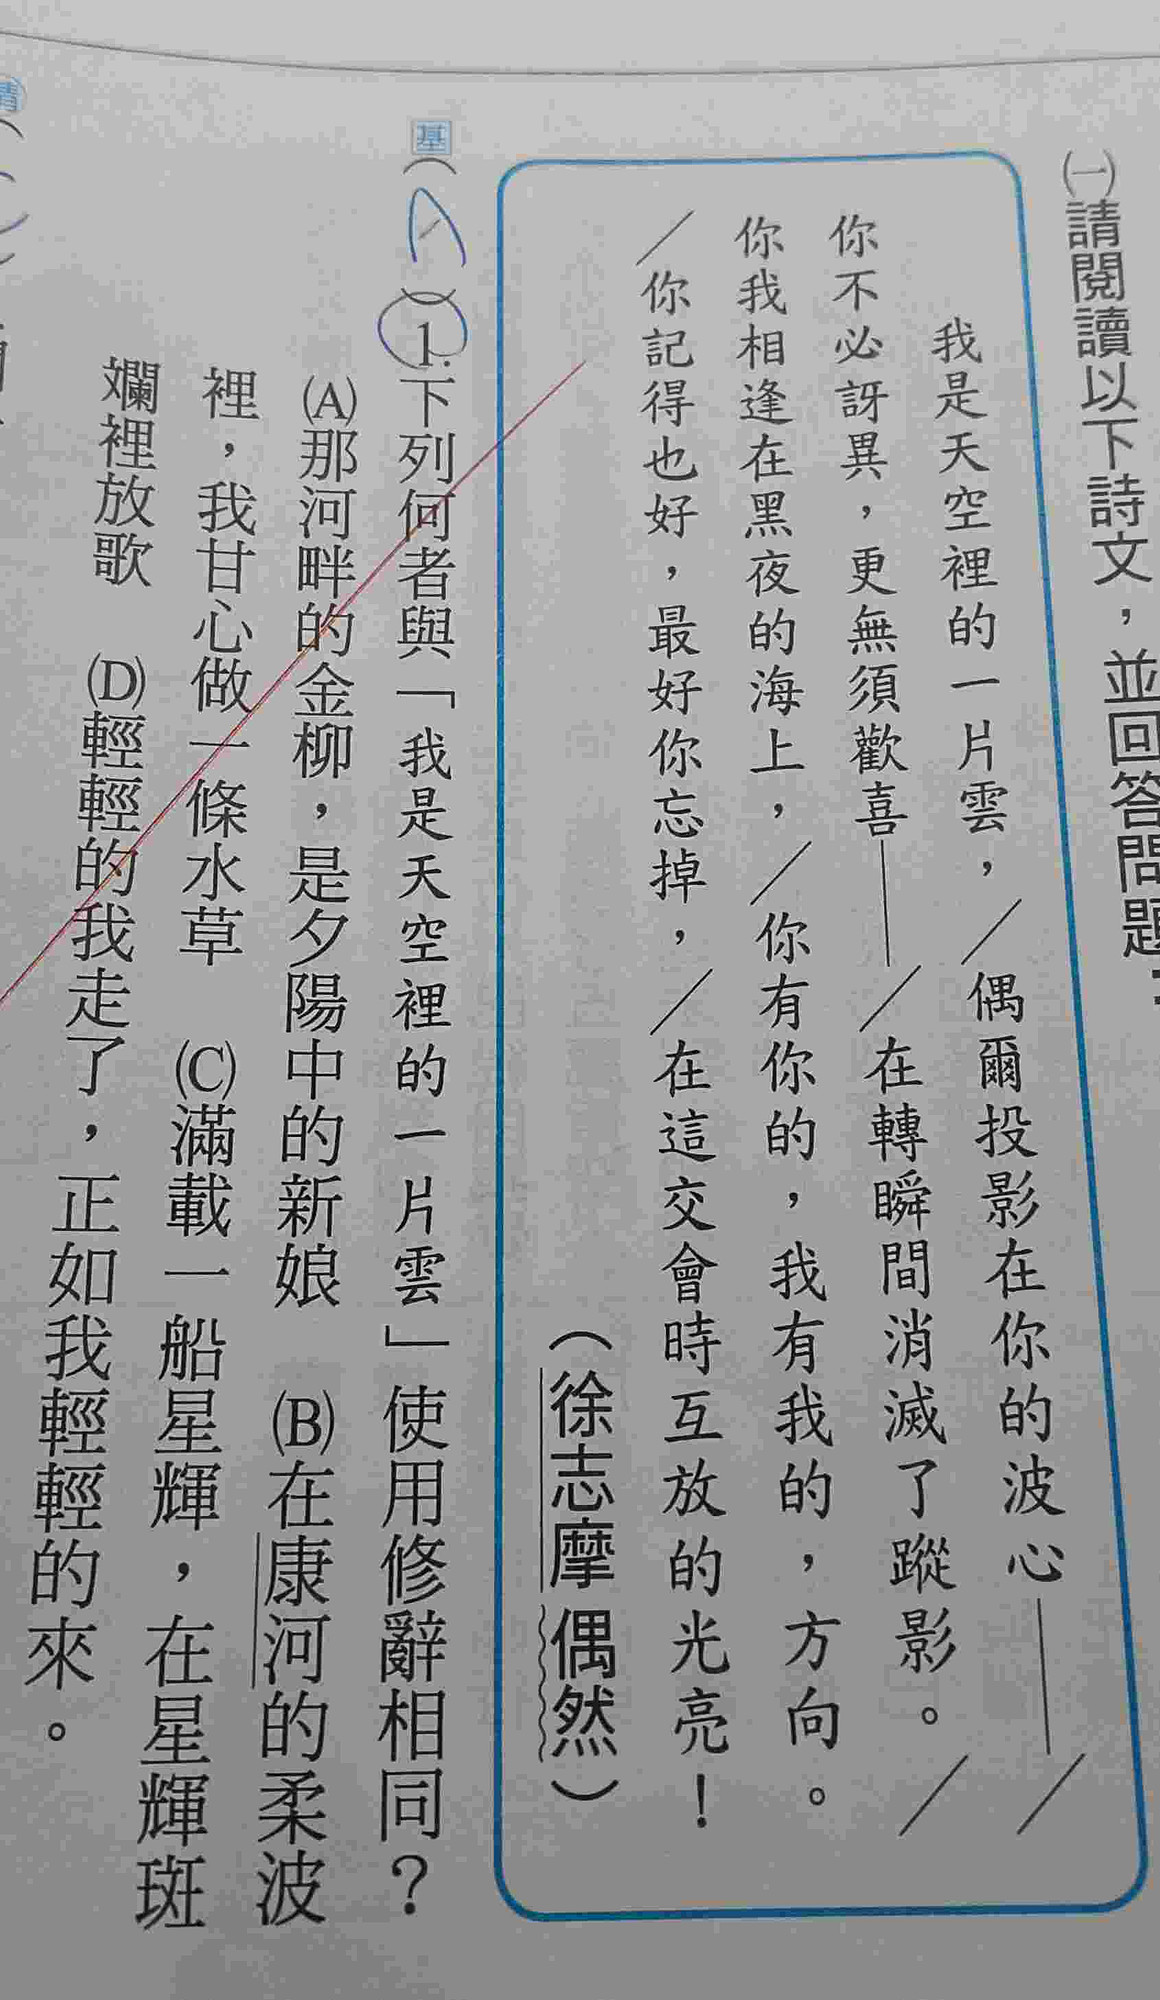 ㈠請閱讀以下詩文，並回答問題：
我是天空裡的一片雲，／偶爾投影在你的波心——／
你不必訝異，更無須歡喜——／在轉瞬間消滅了蹤影。／
你我相逢在黑夜的海上，／你有你的，我有我的，方向。
／你記得也好，最好你忘掉，／在這交會時互放的光亮！
（徐志摩 偶然）
基（A）1.下列何者與「我是天空裡的一片雲」使用修辭相同？
(A)那河畔的金柳，是夕陽中的新娘 (B)在康河的柔波
裡，我甘心做一條水草 (C)滿載一船星輝，在星輝斑
斕裡放歌 (D)輕輕的我走了，正如我輕輕的來。